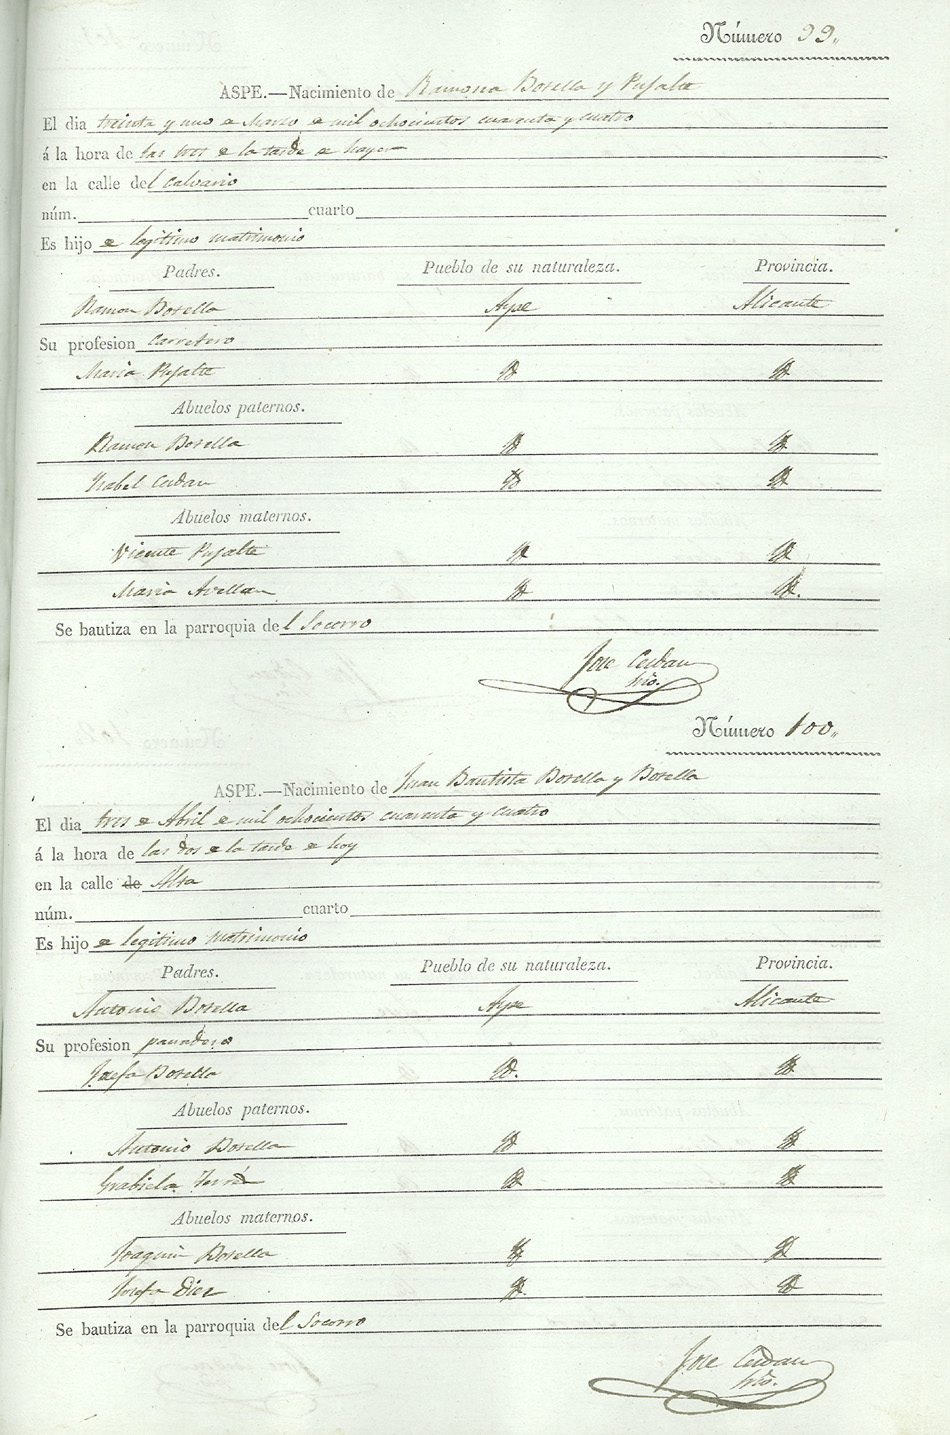 Número 99.
ASPE.—Nacimiento de Ramona Botella y Pujalte
El dia treinta y uno de Marzo de mil ochocientos cuarenta y cuatro
á la hora de las tres de la tarde de hayer
en la calle del Calvario
núm. cuarto
Es hijo de legitimo matrimonio
Padres. Pueblo de su naturaleza. Provincia.
Ramon Botella Aspe Alicante
Su profesion carretero
Maria Pujalte Yd Yd
Abuelos paternos.
Ramon Botella Yd Yd
Ysabel Cerdan Yd Yd
Abuelos maternos.
Vicente Pujalte Yd Yd
Maria Avellan Yd Yd.
Se bautiza en la parroquia del Socorro
Jose Cerdan
Srio.
Número 100.
ASPE.—Nacimiento de Juan Bautista Botella y Botella
El dia tres de Abril de mil ochocientos cuarenta y cuatro
á la hora de las dos de la tarde de hoy
en la calle de Alta
núm. cuarto
Es hijo de legitimo matrimonio
Padres. Pueblo de su naturaleza. Provincia.
Antonio Botella Aspe Alicante
Su profesion panadero
Josefa Botella Yd. Yd
Abuelos paternos.
Antonio Botella Yd Yd
Grabiela Yd Yd
Abuelos maternos.
Joaquin Botella Yd Yd
Josefa Diez Yd Yd
Se bautiza en la parroquia del Socorro
Jose Cerdan
Srio.